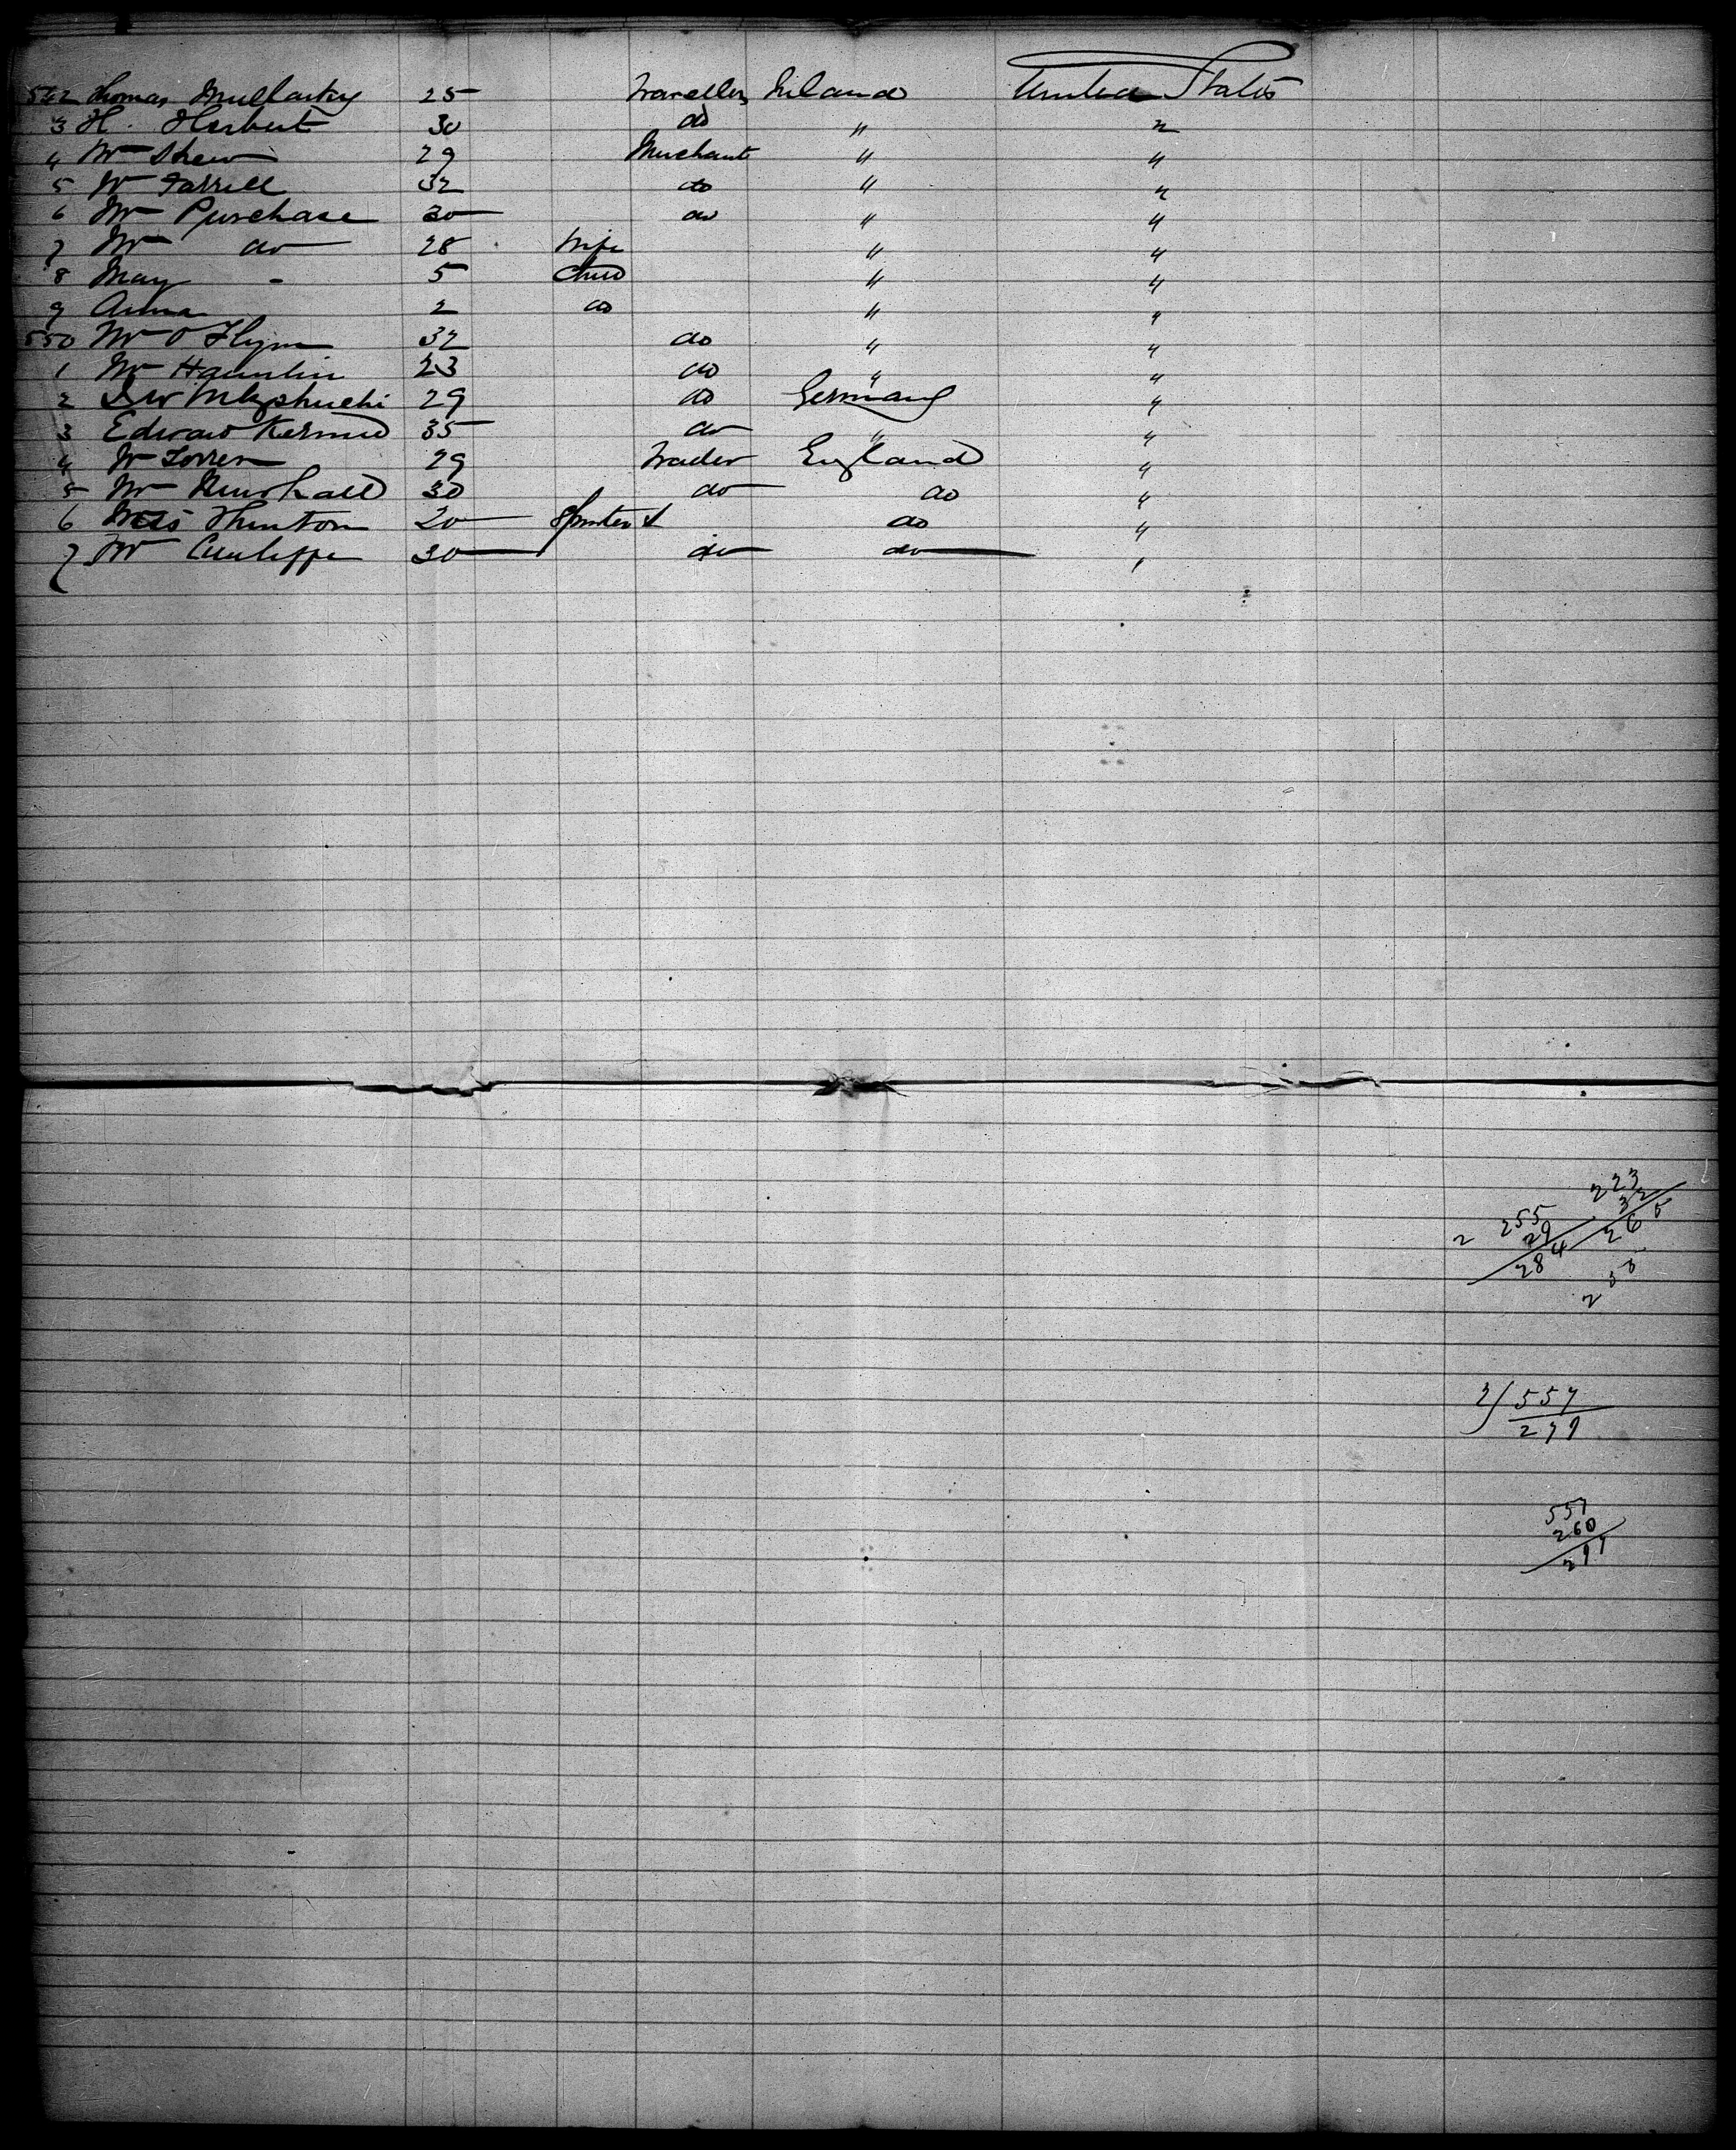 542 Thomas Mullarkey 25 Traveller Ireland United States
3 H. Herbert 30 do " "
4 Mr Shew 29 Merchant " "
5 Mr Farrell 32 do " "
6 Mr Purchase 30 do " "
7 Mr do 28 Wife " "
8 May - 5 Child " "
9 Anna 2 do " "
550 Mr O Flynn 32 do " "
1 Mr 23 do " "
2 29 do Germany "
3 Edward 35 do " "
4 Mr 29 Trader England "
5 Mr 30 do do "
6 Miss Thuntom 20 Spinster do "
7 Mr Cunliffe 30 do do "
223
32
265
2 255
29
284
233
2/557
277
557
260
297